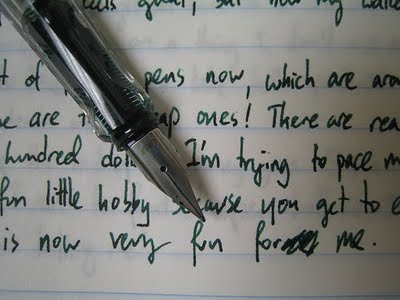 feels good, but now my
t of pens now, which are arou
e are ap ones! There are rea
hundred do I'm trying to pace m
fun little hobby because you get to e
is now very fun for me.